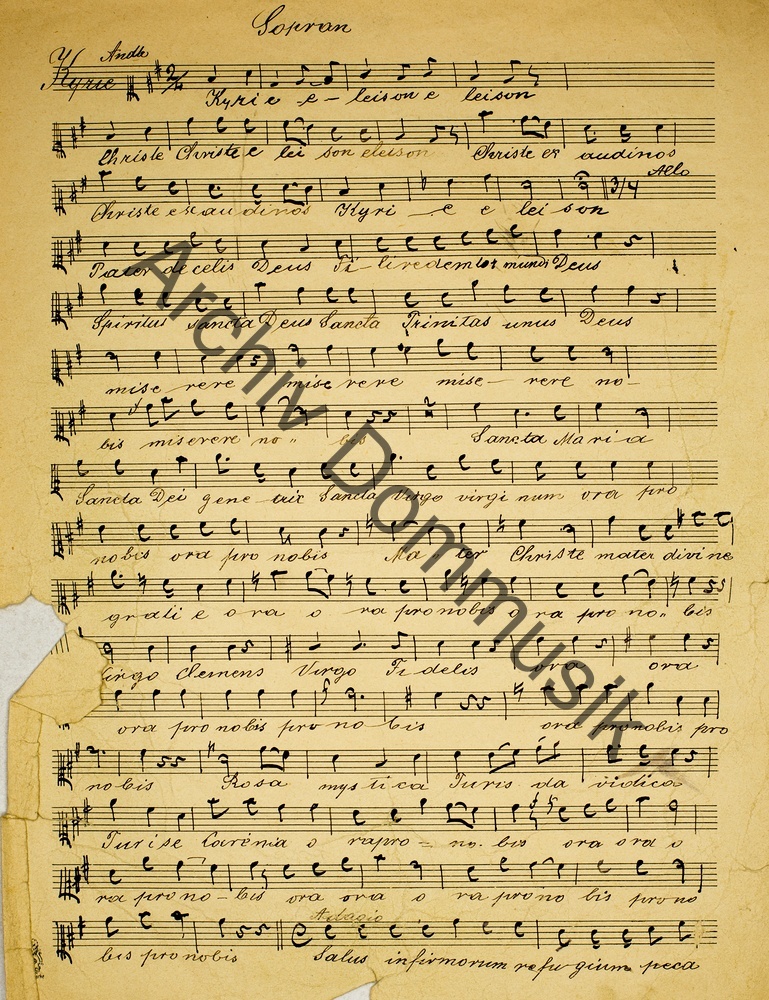 Sopran
Andte
Kyrie 2/4
Kyrie e - leison e leison
Christe Christe e lei son eleison Christe ex audinos
Allo
3/4
Christe exaudinos Kyri - e e leison
Pater de celis Deus Fi - li redemtor mundi Deus
Spiritus Sancta Deus Sancta Trinitas unus Deus
mise rere mise rere mise - rere no -
bis miserere no " bis Sancta Maria
Sancta Dei gene trix Sancta Virgo virginum ora pro
nobis ora pro nobis Ma " ter Christe mater divine
grati e ora o ra pro nobis o ra pro no " bis
Virgo Clemens Virgo Fi delis ora ora
ora pro nobis pro no bis ora pro nobis pro
nobis Rosa mystica Turis da vidica
Turise o rapro - no. bis ora ora o
ra pro no - bis ora ora o ra pro no bis pro no
Adagio
bis pro nobis Salus infirmorum refugium peca
Archiv Dommusik